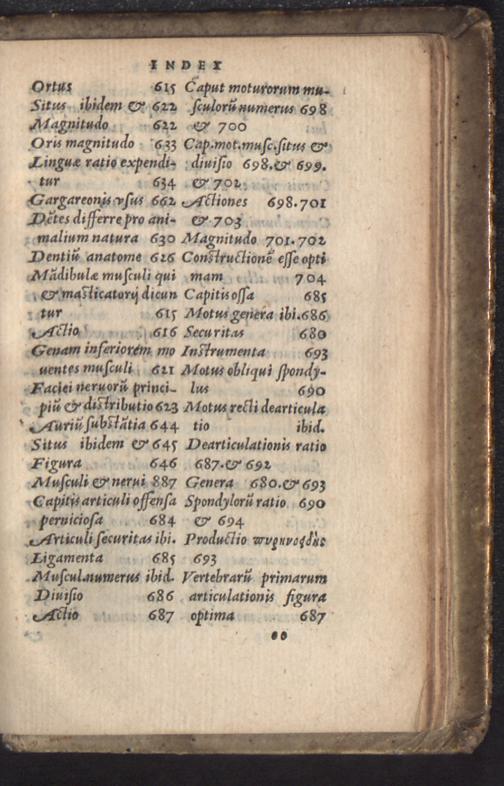 INDEX
Ortus 615
Situs ibidem & 622
Magnitudo 622
Oris magnitudo 633
Linguæ ratio expendi-
tur 634
Gargareonis vsus 662
Dẽtes differre pro ani-
malium natura 630
Dentiũ anatome 626
Mãdibulæ musculi qui
& masticatorij dicun
tur 615
Actio 616
Genam inferiorem mo
uentes musculi 621
Faciei neruorũ princi-
piũ & distributio 623
Auriũ substãtia 644
Situs ibidem & 645
Figura 646
Musculi & nerui 887
Capitis articuli offensa
perniciosa 684
Articuli securitas ibi.
Ligamenta 685
Muscul.numerus ibid.
Diuisio 686
Actio 687
Caput moturorum mu-
sculorũ numerus 698
& 700
Cap.mot.musc.situs &
diuisio 698.& 699.
& 702.
Actiones 698.701
& 703
Magnitudo 701.702
Constructionẽ esse opti
mam 704
Capitis ossa 685
Motus genera ibi.686
Securitas 680
Instrumenta 693
Motus obliqui spondy-
lus 690
Motus recti dearticula
tio ibid.
Dearticulationis ratio
687.& 692
Genera 680.& 693
Spondylorũ ratio 690
& 694
Productio πυρηνοειδὴς
693
Vertebrarũ primarum
articulationis figura
optima 687